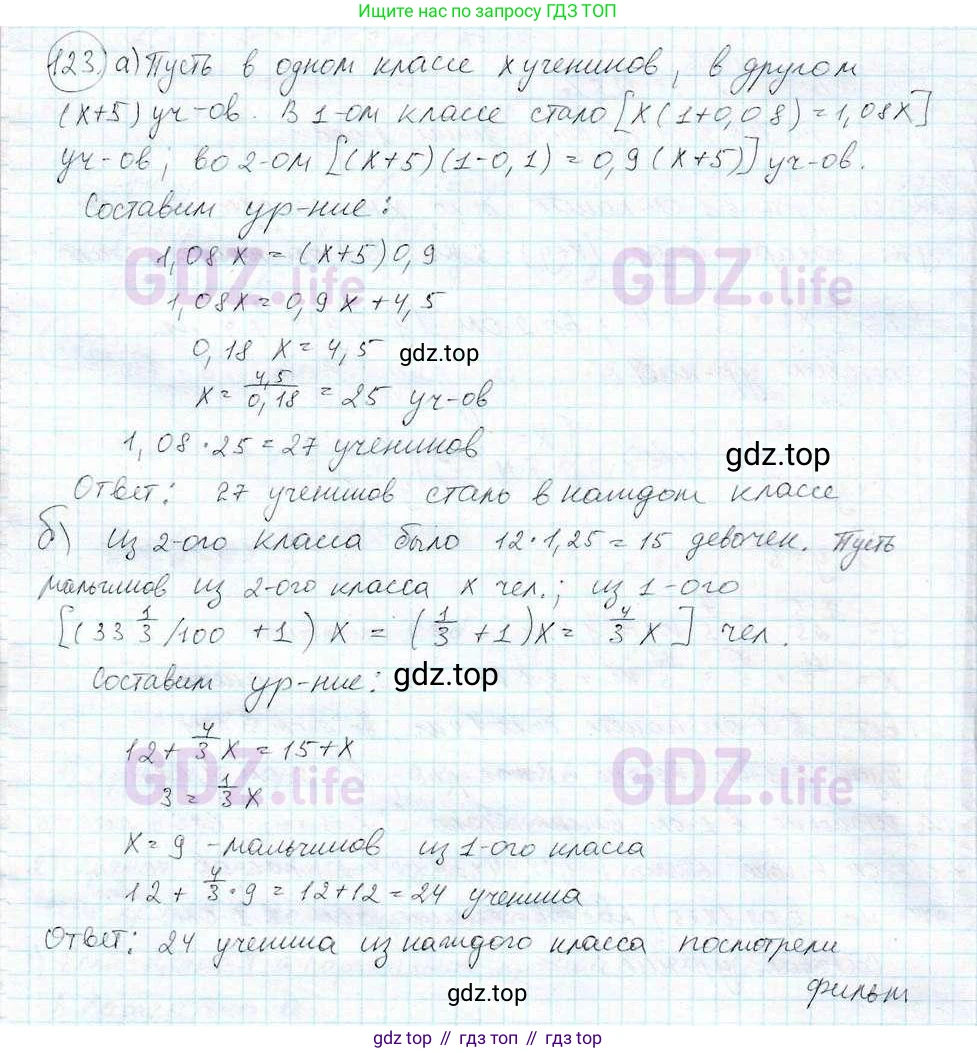 Ищите нас по запросу ГДЗ ТОП
123. а) Пусть в одном классе x учеников, в другом
(x+5) уч-ов. В 1-ом классе стало [x(1+0,08)=1,08x]
уч-ов; во 2-ом [(x+5)(1-0,1)=0,9(x+5)] уч-ов.
Составим ур-ние:
1,08x=(x+5)0,9
GDZ.life GDZ.life
1,08x=0,9x+4,5
0,18x=4,5
gdz.top
x=4,5/0,18=25 уч-ов
1,08·25=27 учеников
gdz.top
Ответ: 27 учеников стало в каждом классе
б) Из 2-ого класса было 12·1,25=15 девочек. Пусть
мальчиков из 2-ого класса x чел.; из 1-ого
[(33 1/3 /100 +1)x=(1/3+1)x=4/3 x] чел.
Составим ур-ние:
gdz.top
12+4/3 x=15+x
GDZ.life GDZ.life
3=1/3 x
x=9 - мальчиков из 1-ого класса
12+4/3·9=12+12=24 ученика
Ответ: 24 ученика из каждого класса посмотрели
фильм
gdz.top
gdz.top // гдз топ // gdz.top